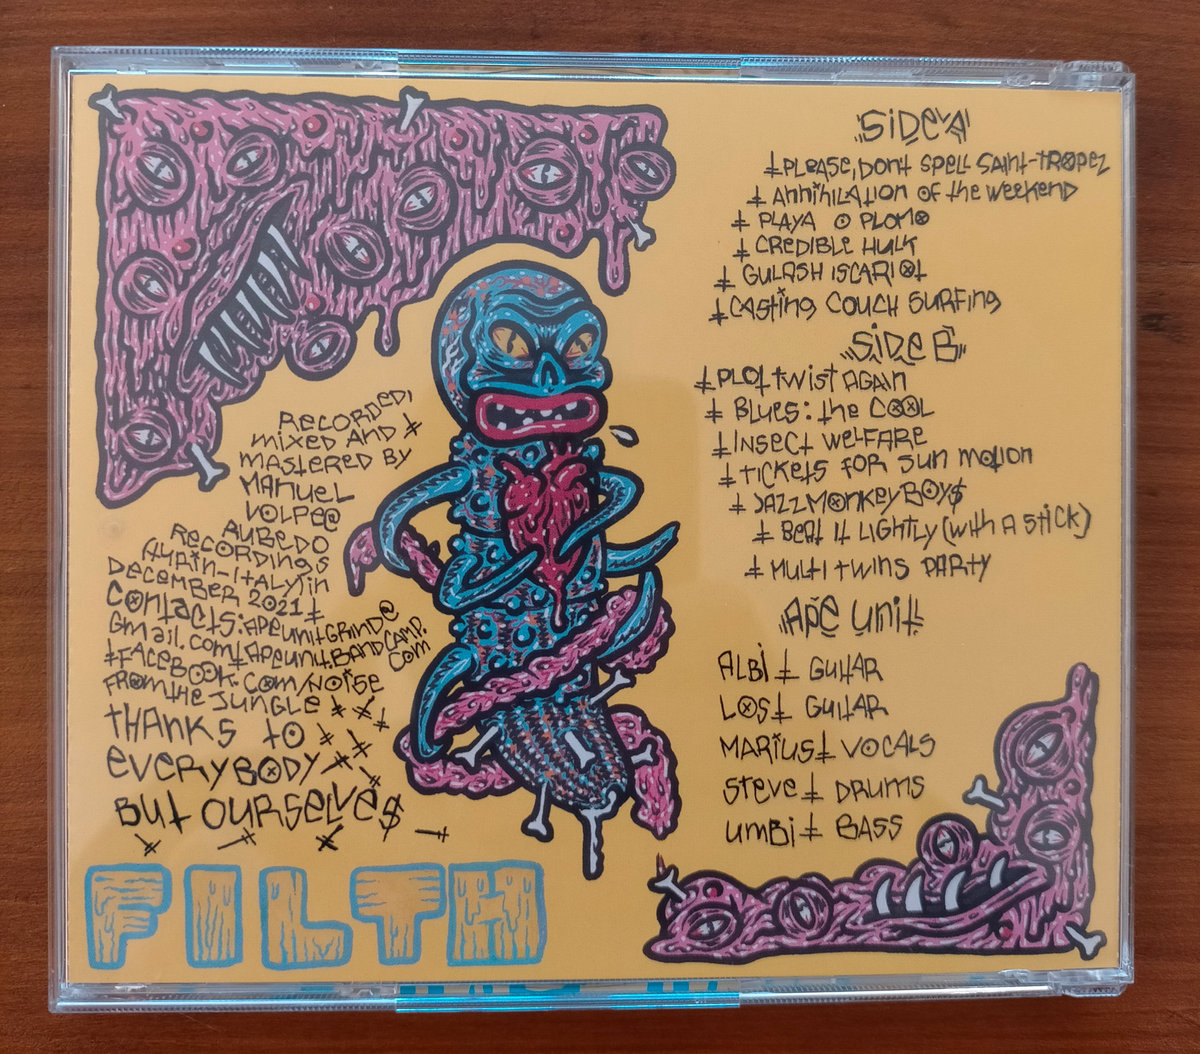 RECORDED,
MIXED AND ‡
MASTERED BY
MANUEL
VOLPE@
RUBEDO
RECORDINGS
‡TURIN-ITALY‡IN
DECEMBER 2021‡
CONTACTS: APEUNITGRIND@
GMAIL.COM‡APEUNIT.BANDCAMP.
COM
‡FACEBOOK.COM/NOISE
FROMTHEJUNGLE‡‡‡
THANKS TO‡‡
EVERYBODY‡‡‡
BUT OURSELVE$
FILTH
"SIDE A"
‡PLEASE, DONT SPELL SAINT-TROPEZ
‡ ANNIHILATION OF THE WEEKEND
‡ PLAYA O PLOMO
‡ CREDIBLE HULK
‡ GULASH ISCARIOT
‡CASTING COUCH SURFING
"SIDE B"
‡PLOT TWIST AGAIN
‡ BLUES: THE COOL
‡INSECT WELFARE
‡TICKETS FOR SUN MOTION
‡ JAZZMONKEYBOY$
‡ BEAT IT LIGHTLY (WITH A STICK)
‡ MULTITWINS PARTY
"APE UNIT"
ALBI ‡ GUITAR
LOST GUITAR
MARIUS‡ VOCALS
STEVE‡ DRUMS
UMBI‡ BASS